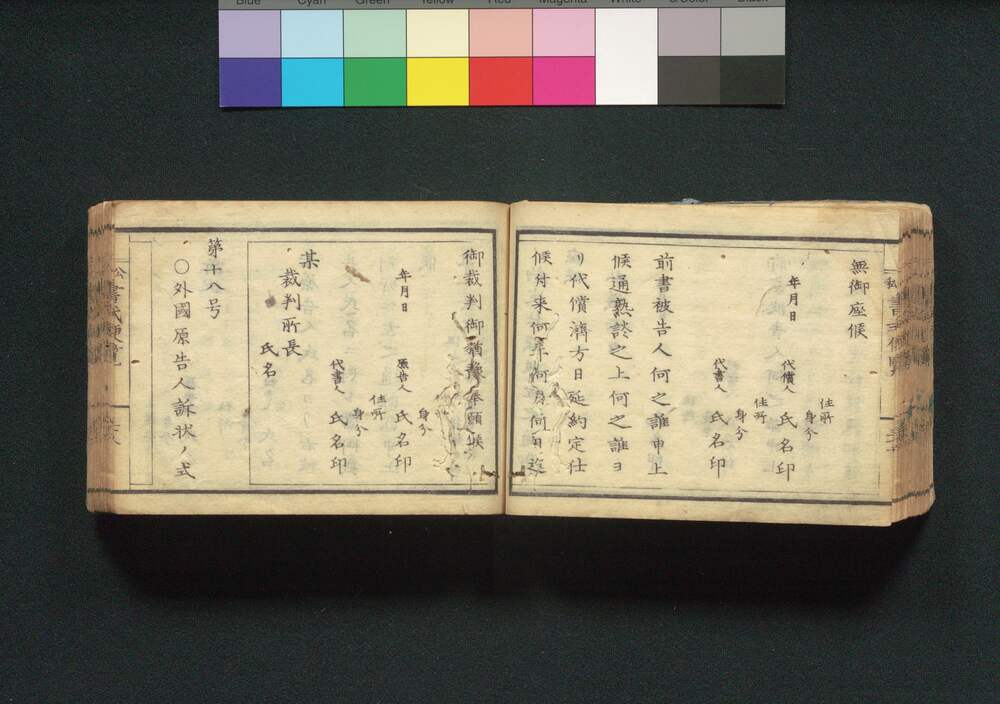 Blue Cyan Green Yellow Red Magenta White 3/Color Black
無御座候
年月日
住所
身分
代償人 氏名印
住所
身分
代書人 氏名印
前書被告人何之誰申上
候通熟談之上何之誰ヨ
リ代償濟方日延約定仕
候付来何年何月何日迄
御裁判御猶豫奉願候
年月日
身分
原告人 氏名印
住所
身分
代書人 氏名印
某
裁判所長
氏名
第十八号
〇外國原告人訴状ノ式